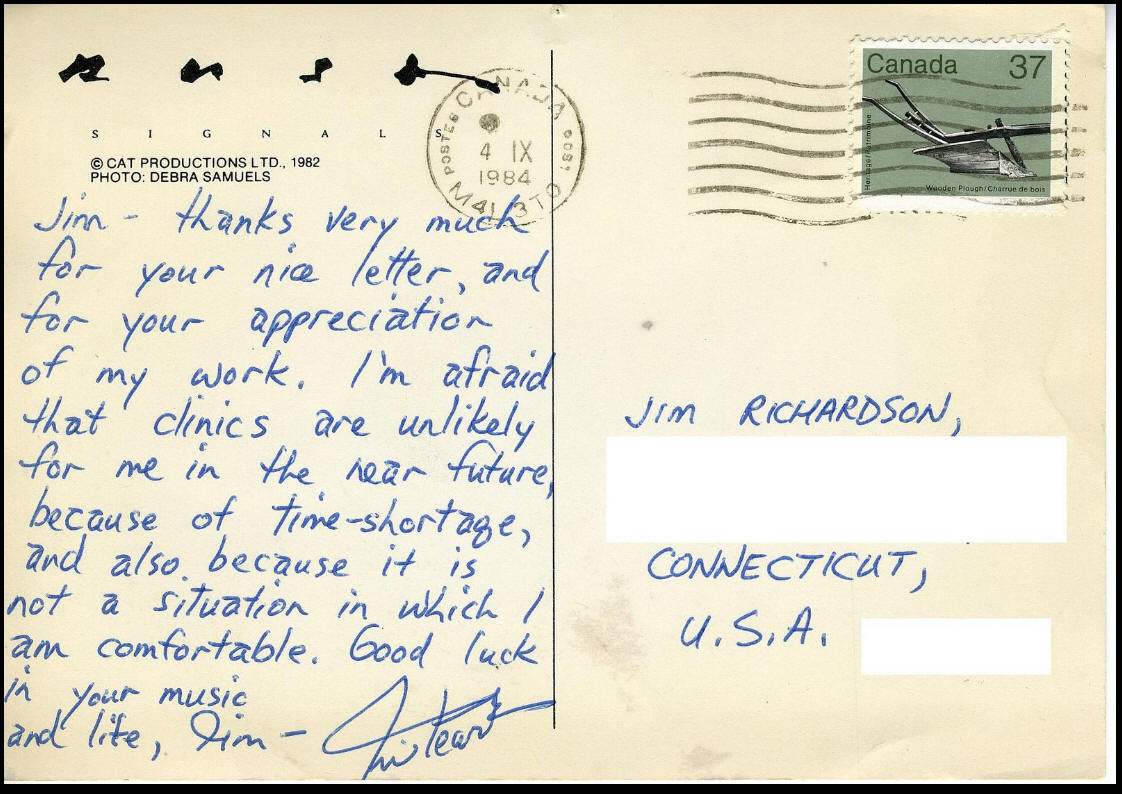 rush
SIGNALS
© CAT PRODUCTIONS LTD., 1982
PHOTO: DEBRA SAMUELS
Jim - thanks very much
for your nice letter, and
for your appreciation
of my work. I'm afraid
that clinics are unlikely
for me in the near future,
because of time-shortage,
and also because it is
not a situation in which I
am comfortable. Good luck
in your music
and life, Jim -
CANADA
POSTES POST
4 IX
1984
M4L 3T0
Canada 37
Heritage/Patrimoine
Wooden Plough/Charrue de bois
JIM RICHARDSON,
CONNECTICUT,
U.S.A.